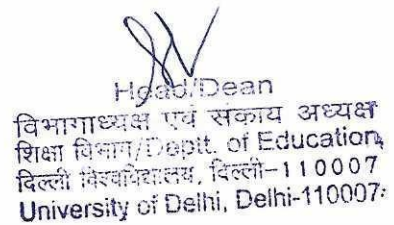 Head/Dean
विभागाध्यक्ष एवं संकाय अध्यक्ष
शिक्षा विभाग/Deptt. of Education
दिल्ली विश्वविद्यालय, दिल्ली-110007
University of Delhi, Delhi-110007.